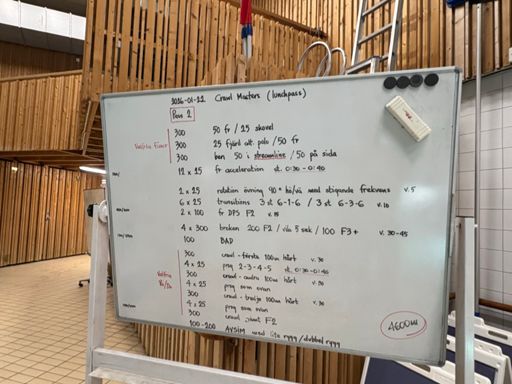 2026-01-22 Crawl Masters (lunchpass)
Pass 2
300 50 fr / 25 skovel
Valfria fenor 300 25 fjäril alt. polo / 50 fr
300 ben 50 i streamline / 50 på sida
12 x 25 fr acceleration st. 0:30-0:40
2 x 25 rotation övning 90° hö/vä med stigande frekvens v.5
6 x 25 transitions 3 st 6-1-6 / 3 st 6-3-6 v.10
2 x 100 fr DPS F2 v.15
4 x 300 broken 200 F2 / vila 5 sek / 100 F3+ v. 30-45
100 BAD
300 crawl - första 100m hårt v.30
4 x 25 prog 2-3-4-5 st. 0:30-0:40
300 crawl - andra 100m hårt v.30
Valfria
4 x 25 prog som ovan
300 crawl - tredje 100m hårt v.30
4 x 25 prog som ovan
300 crawl F2
100-200 Avsim med lite rygg / dubbel rygg
4600m